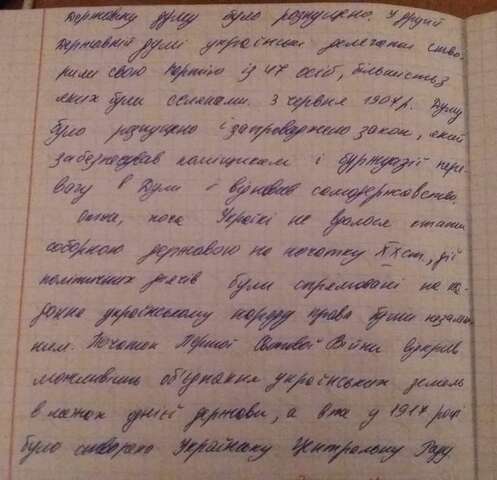 Державну думу було розпущено. У другій
Державній думі українські делегати ство-
рили свою партію із 47 осіб, більшість з
яких були селянами. 3 червня 1907 р. Думу
було розпущено і запроваджено закон, який
забезпечував поміщикам і буржуазії пере-
вагу в Думі і відновив самодержавство.
Отже, хоча Україні не вдалося стати
соборною державою на початку XX ст., дії
політичних діячів були спрямовані на на-
дання українському народу права бути незалеж-
ним. Початок Першої Світової Війни відкрив
можливість об'єднання українських земель
в межах однієї держави, а вже у 1917 році
було створено Українську Центральну Раду